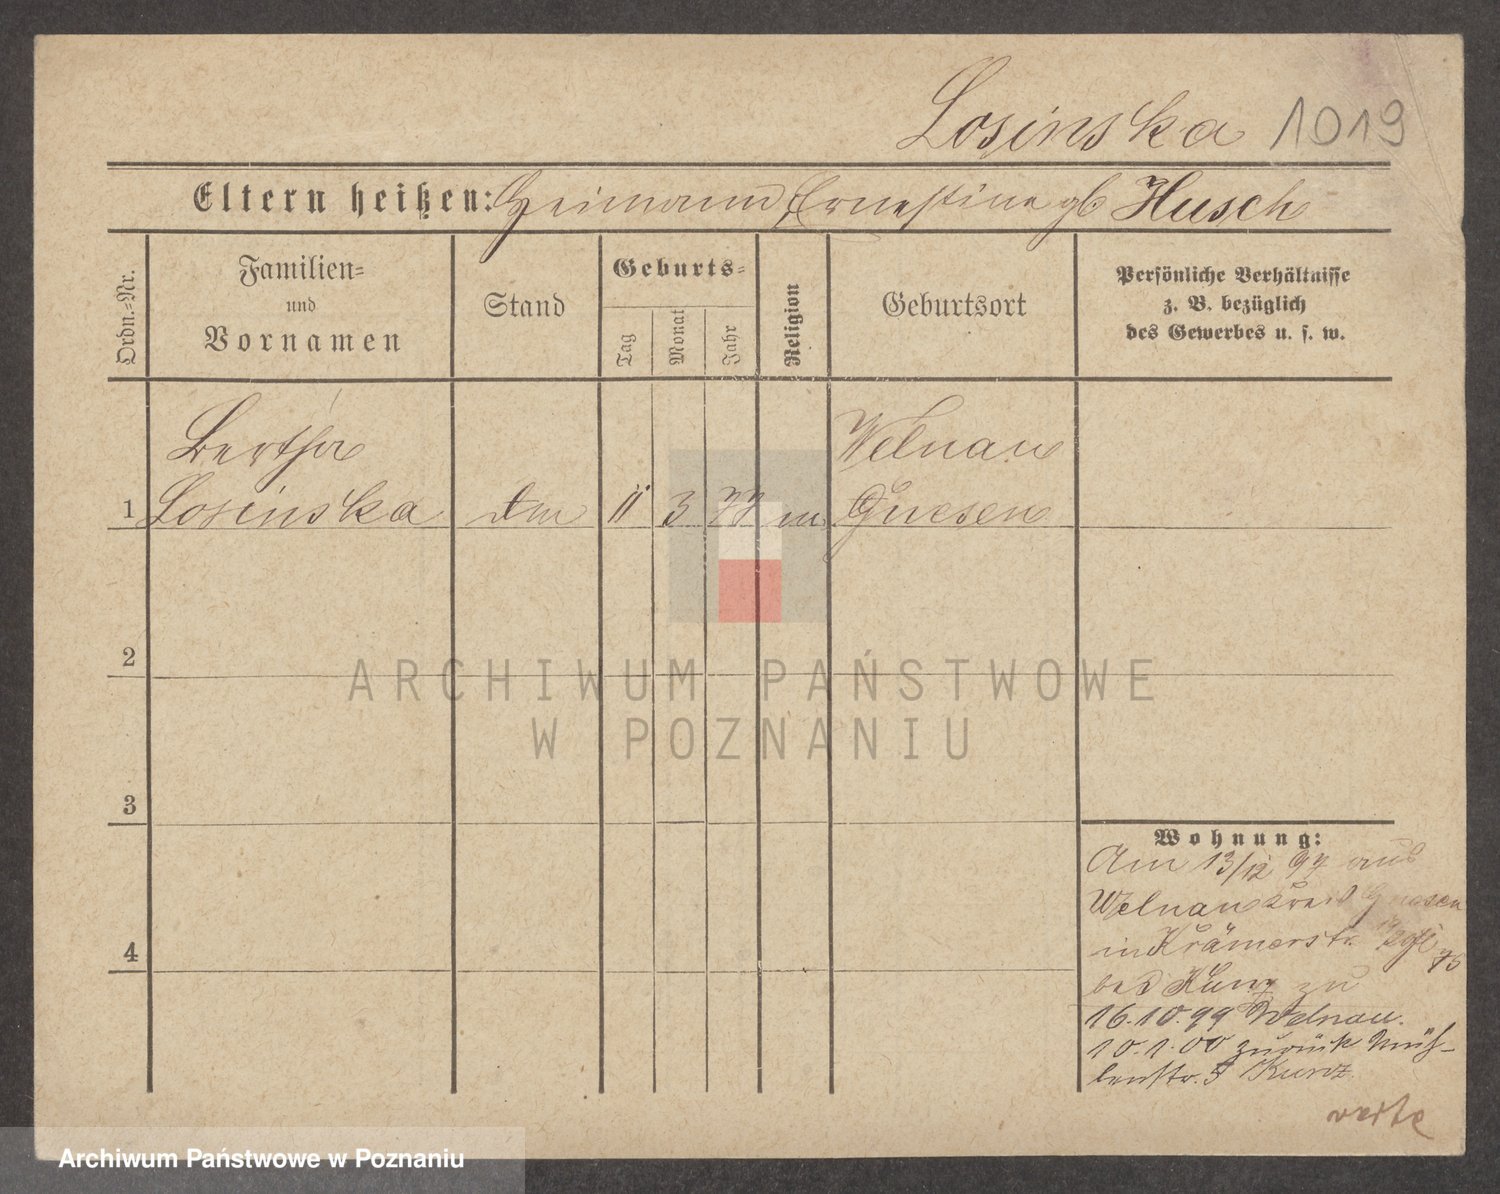 Losinska 1019
Eltern heißen: Heimann, Ernestine gb Husch
Ordn.-Nr.
Familien-
und
Vornamen
Stand
Geburts-
Tag
Monat
Jahr
Religion
Geburtsort
Persönliche Verhältnisse
z. B. bezüglich
des Gewerbes u. s. w.
Bertha
Losinska
1
11 3 77 m
Welnau
Gnesen
2
3
4
Wohnung:
Am 13/12 97 aus
Welnau Kreis Gnesen
in Krämerstr.
bei zu
16.10.99 Welnau.
10.1.00 zurück Müh-
lenstr. 5 Kunz
ARCHIWUM PAŃSTWOWE
W POZNANIU
Archiwum Państwowe w Poznaniu